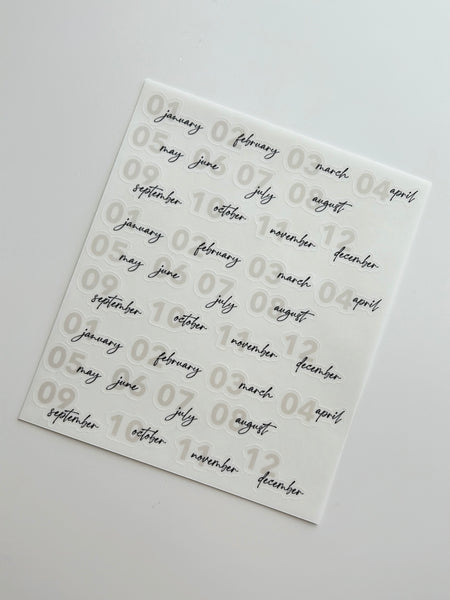 01 january 02 february 03 march 04 april
05 may 06 june 07 july 08 august
09 september 10 october 11 november 12 december
01 january 02 february 03 march 04 april
05 may 06 june 07 july 08 august
09 september 10 october 11 november 12 december
01 january 02 february 03 march 04 april
05 may 06 june 07 july 08 august
09 september 10 october 11 november 12 december